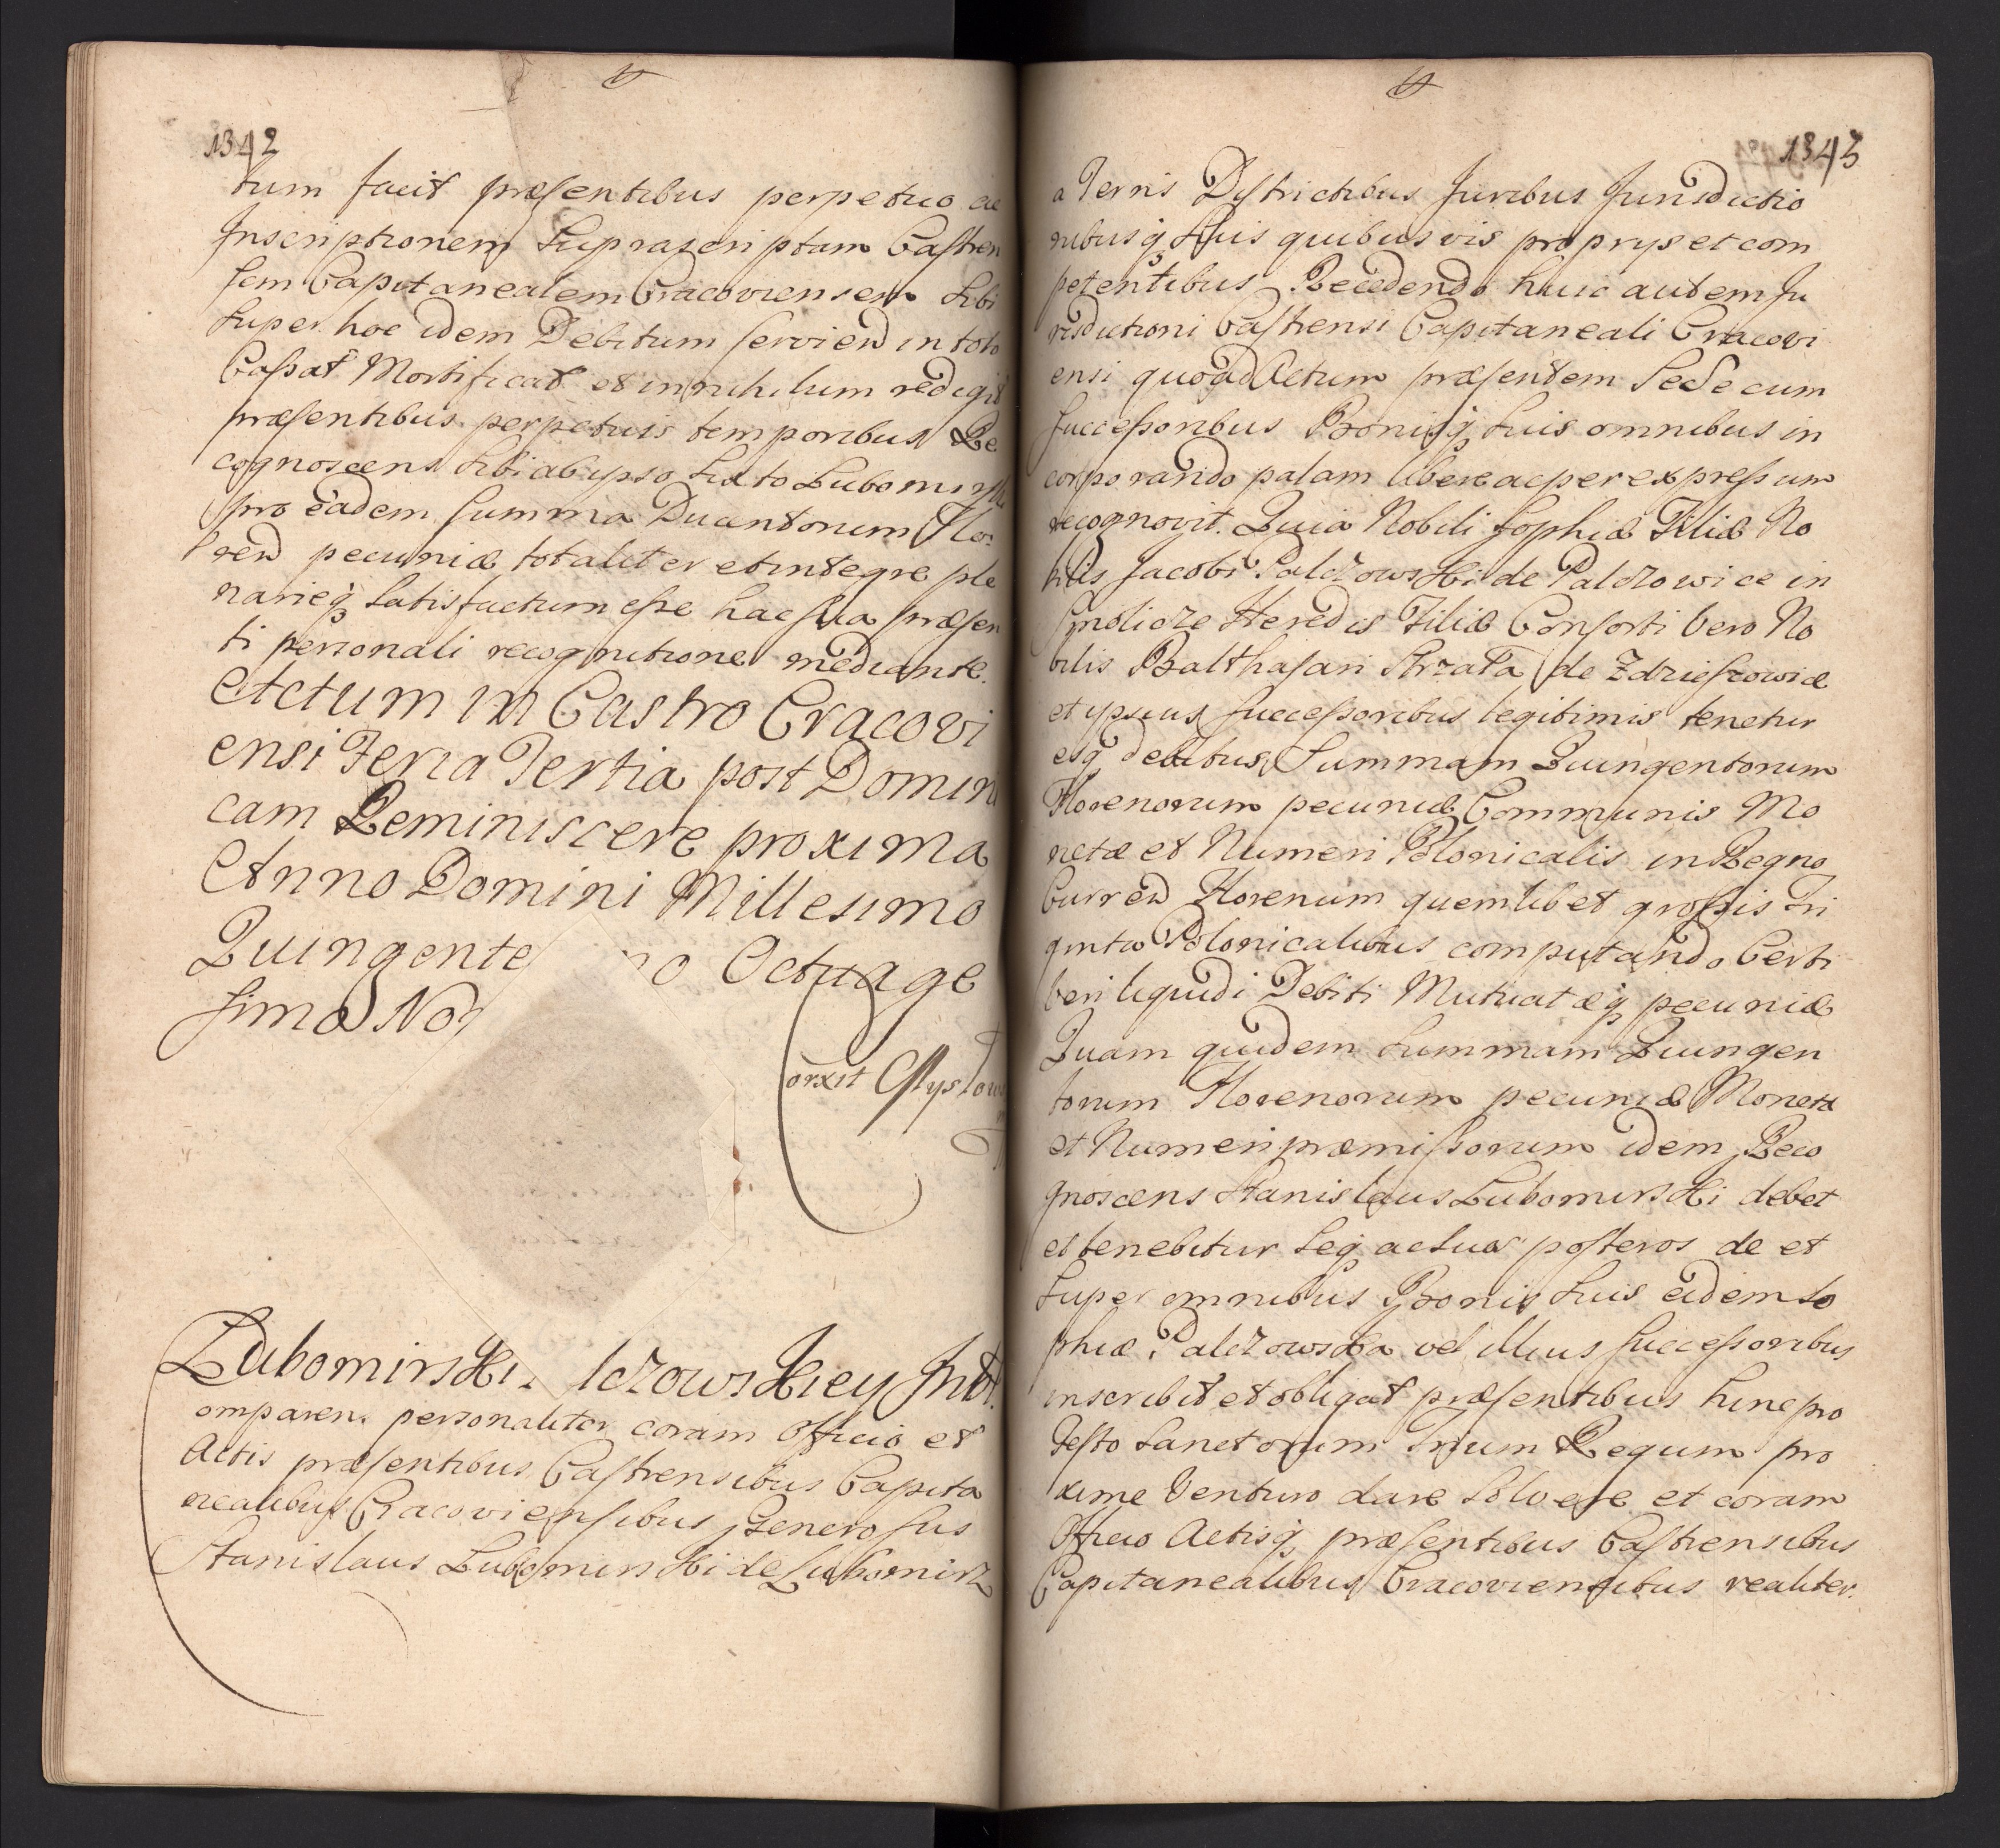 1342
tum facit præsentibus perpetuo ac
Inscriptionem Suprascriptam Castren
sem Capitanealem Cracoviensem Sibi
Super hoc idem Debitum servien in toto
Cassat Mortificat et in nihilum redigit
præsentibus perpetuis temporibus Re
cognoscens Sibi ab ipso Sixto Lubomirski
pro eadem Summa Ducentorum Flo
ren pecuniæ totaliter et integre ple
narieq Satisfactum esse hac sua præsen
ti personali recognitione mediante.
Actum in Castro Cracovi
ensi Feria Tertia post Domini
cam Reminiscere proxima
Anno Domini Millesimo
Quingente no Octuage
simo No
Lubomirski lczowskiey Inbt.
omparens personaliter coram Officio et
Actis præsentibus Castrensibus Capita
nealibus Cracoviensibus Generosus
Stanislaus Lubomirski de Lubomirz
1343
a Terris Districtibus Juribus Jurisdictio
nibusq Suis quibusvis proprys et com
petentibus Recedendo huic autem Ju
risdictioni Castrensi Capitaneali Cracovi
ensi quoad Actum præsentem Se Se cum
successoribus Bonisq Suis omnibus in
corporando palam libere ac per expressum
recognovit. Quia Nobili Sophiæ Filiæ No
bilis Jacobi Palczowski de Palczowice in
Smolicze Heredis Filiæ Consorti vero No
bilis Balthasari Strzała de Zdziesrowic
et ipsius successoribus legitimis tenetur
esq debitus Summam Quingentorum
Florenorum pecuniæ Communis Mo
netæ et Numeri Polonicalis in Regno
Curren Florenum quemlibet grossis Tri
ginta Polonicalibus computando Certi
veri liquidi Debiti Mutuatæq pecuniæ
Quam quidem Summam Quingen
torum Florenorum pecuniæ Monetæ
et Numeri præmissorum idem Reco
gnoscens Stanislaus Lubomirski debet
et tenebitur Seq ac Suos posteros de et
Super omnibus Bonis Suis eidem So
phiæ Palczowska vel illius Successoribus
inscribit et obligat præsentibus hinc pro
Festo Sanctorum Trium Regum pro
xime Venturo dare Solvere et coram
Officio Actisq præsentibus Castrensibus
Capitanealibus Cracoviensibus realiter.